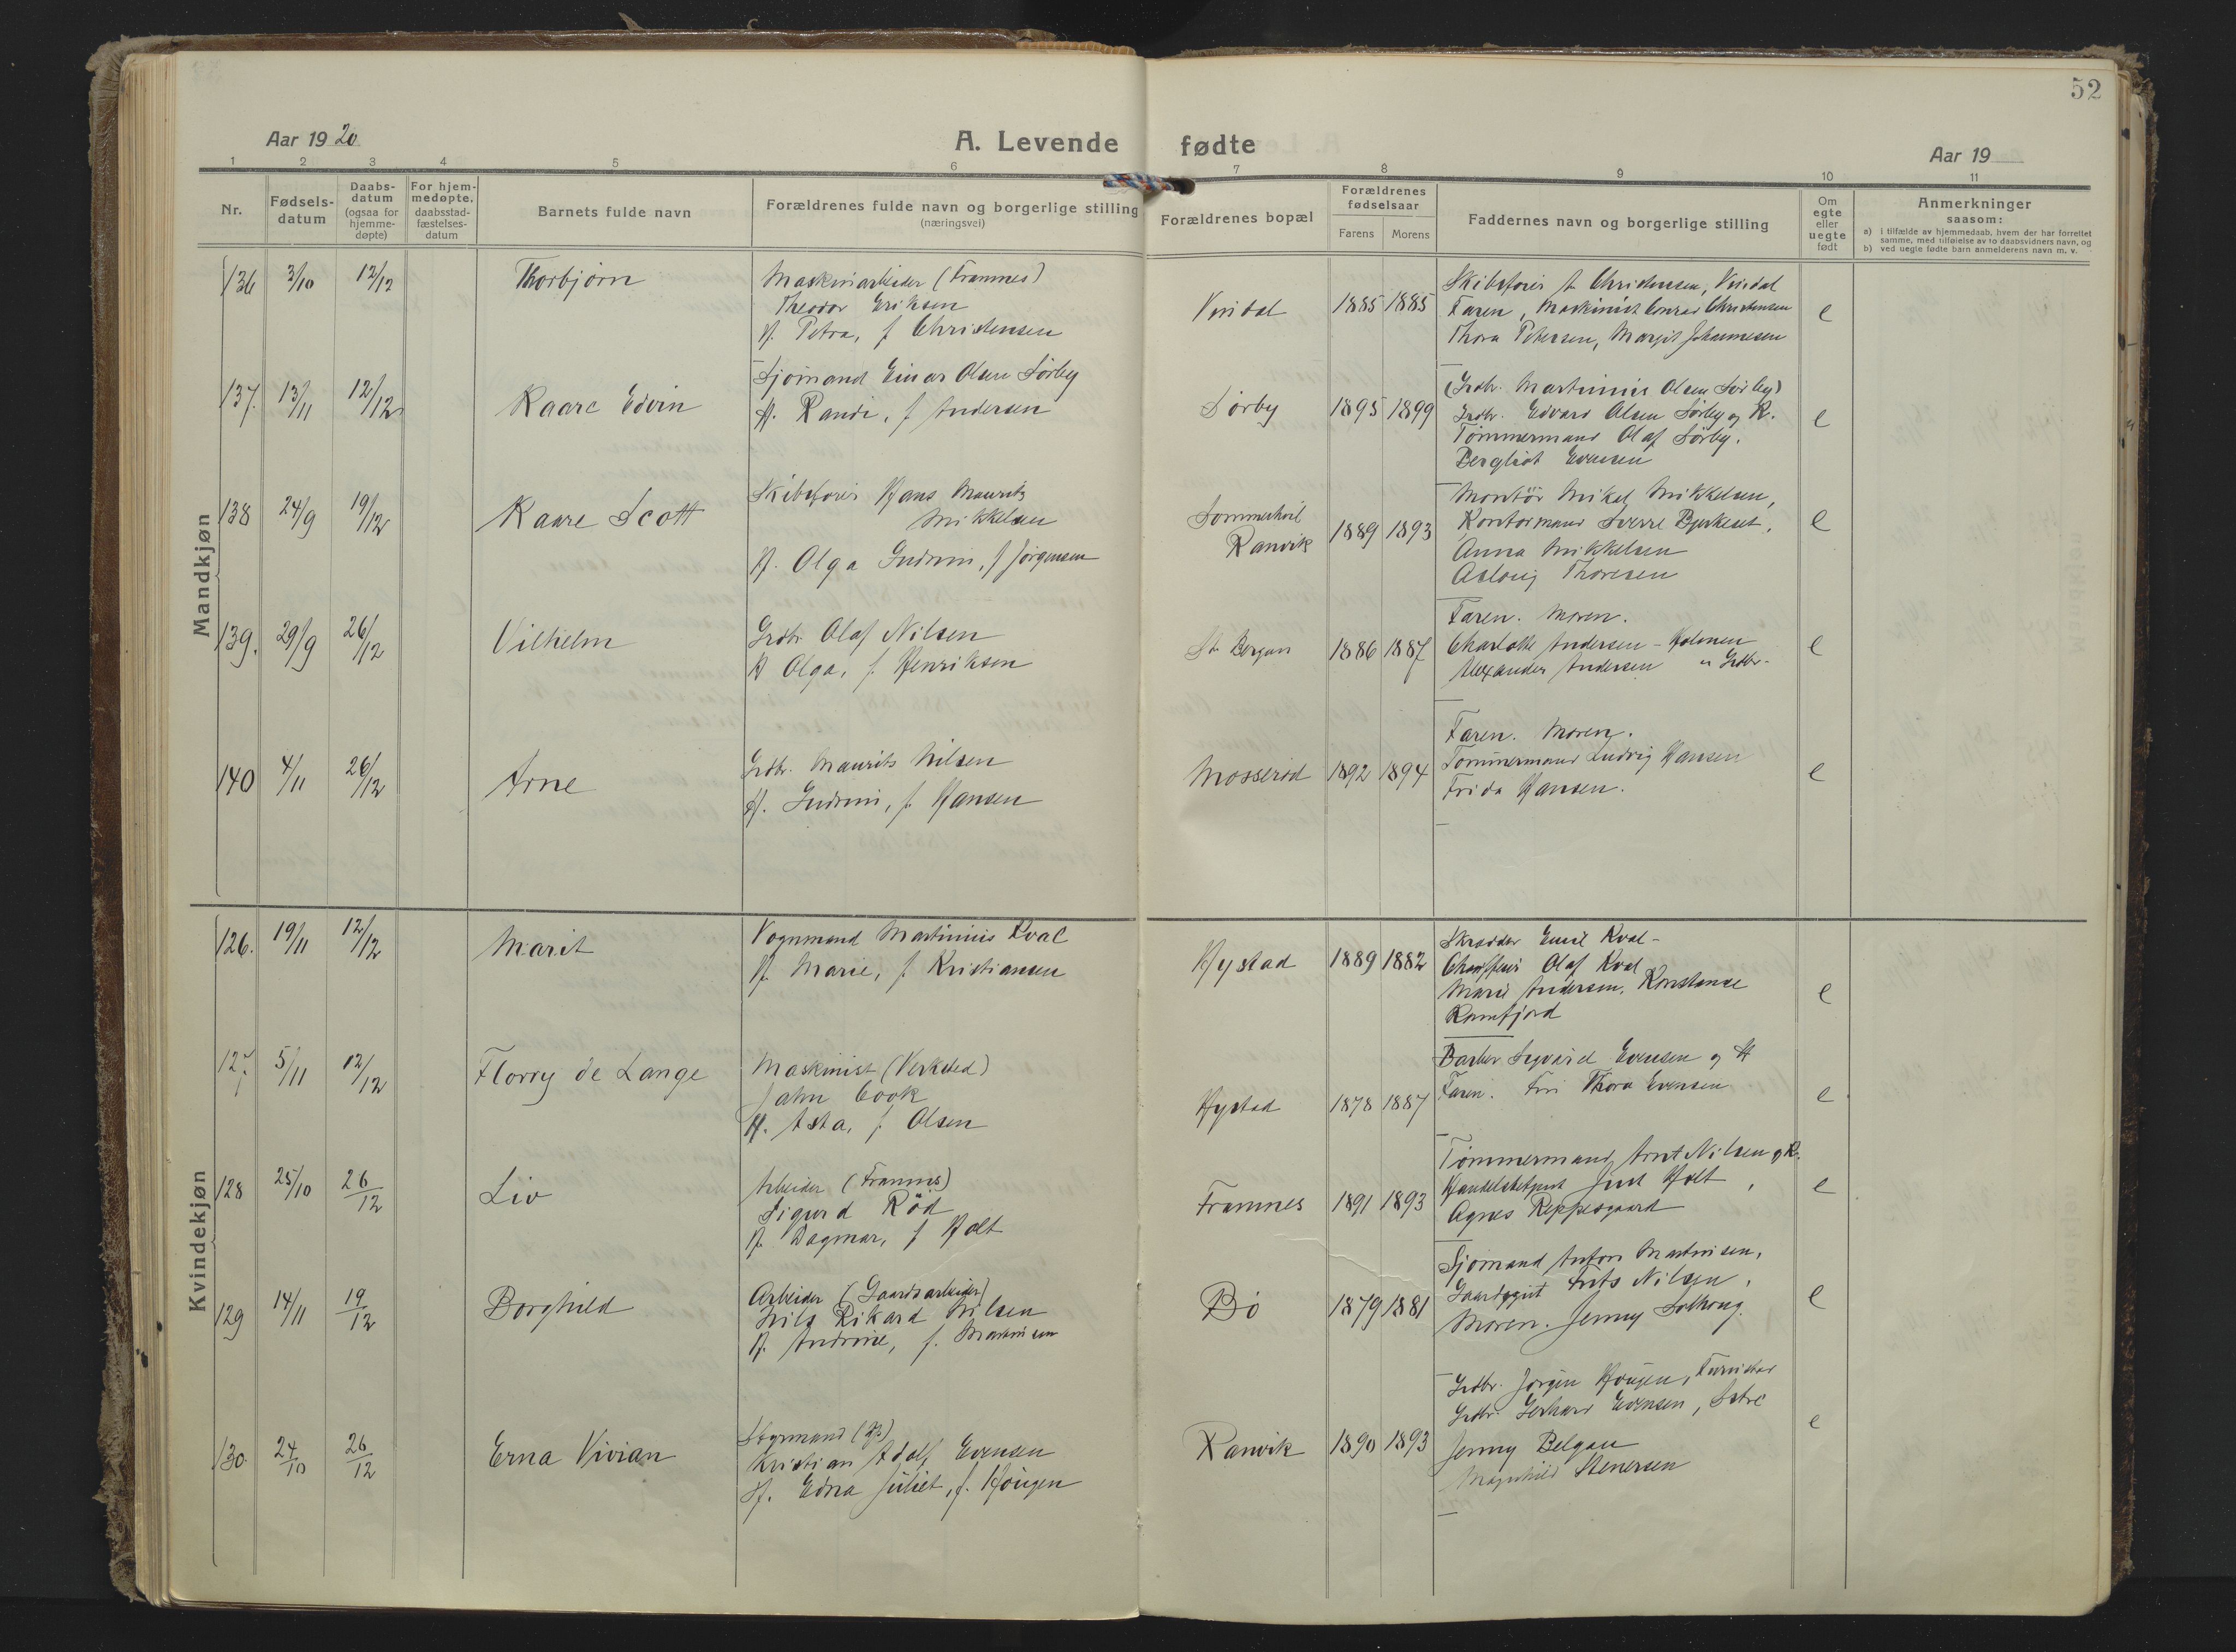 52
Aar 1920
A. Levende fødte
Aar 19
1 2 3 4 5 6 7 8 9 10 11
Nr.
Fødsels-
datum
Daabs-
datum
(ogsaa for
hjemme-
døpte)
For hjem-
medøpte.
daabsstad-
fæstelses-
datum
Barnets fulde navn
Forældrenes fulde navn og borgerlige stilling
(næringsvei)
Forældrenes bopæl
Forældrenes
fødselsaar
Farens Morens
Faddernes navn og borgerlige stilling
Om
egte
eller
uegte
født
Anmerkninger
saasom:
a) i tilfælde av hjemmedaab, hvem der har forrettet
samme, med tilføielse av to daabsvidners navn, og
b) ved uegte fødte barn anmelderens navn m. v.
Mandkjøn
136 3/10 12/12 Thorbjørn
Maskinarbeider (Framnes)
Theodor Eriksen
H. Petra, f Christensen
Vindal 1885 1885
Skibsfører A. Christensen, Vindal
Faren, Maskinist Conrad Christensen
Thora Petersen, Margit Johannesen
e
137. 13/11 12/12 Kaare Edvin
Sjømand Einar Olsen Sørby
H. Randi, f Andersen
Sørby 1895 1899
(Grdbr. Martinius Olsen Sørby)
Grdbr. Edvard Olsen Sørby og K.
Tømmermand Olaf Sørby.
Bergliot Evensen
e
138 24/9 19/12 Kaare Scott
Skibsfører Hans Maurits
Mikkelsen
H. Olga Gudrun, f Jørgensen
Ranvik 1889 1893
Montør Mikal Mikkelsen,
Kontormand Sverre Bjerkeset,
Anna Mikkelsen
Aslaug Thoresen
e
139. 29/9 26/12 Vilhelm
Grdbr Olaf Nilsen
H Olga, f. Henriksen
St. Bergan 1886 1887
Faren. Moren.
Charlotte Andersen - Holmen
Alexander Andersen " Grdbr.
e
140 4/11 26/12 Arne
Grdbr. Maurits Nilsen
H. Gudrun, f. Hansen
Mosserød 1892 1894
Faren. Moren.
Tømmermand Ludvig Hansen
Frida Hansen.
e
Kvindekjøn
126. 19/11 12/12 Marit
Vognmand Martinius Kval
H. Marie, f. Kristiansen
Hystad 1889 1882
Skrædder Emil Kval-
Chauffeur Olaf Kval
Marie Andersen, Konstanse
Ramfjord
e
127 5/11 12/12 Florry de Lange
Maskinist (Verksted)
John Cook
H. Asta, f. Olsen
Hystad 1878 1887
Barber Sigvard Evensen og H
Faren. Frk Thora Evensen
e
128 25/10 26/12 Liv
Arbeider (Framnes)
Sigurd Rød
H. Dagmar, f Holt
Framnes 1891 1893
Tømmermand Arnt Nilsen og K.
Handelsbetjent Juul Holt,
Agnes Reppesgaard
e
129 14/11 19/12 Borghild
Arbeider (Gaardsarbeider)
Nils Rikard Nilsen
H. Andrine, f. Martinsen
Bø 1879 1881
Sjømand Anton Martinsen,
Gaardsgut Frits Nilsen,
Moren. Jenny Solhaug.
e
130. 24/10 26/12 Erna Vivian
Styrmand
Kristian Adolf Evensen
H. Edna Juliet, f. Haugen
Ranvik 1890 1893
Grdbr. Jørgen Haugen,
Grdbr. Gerhard Evensen,
Jenny Belgau
Magnhild Stenersen
e